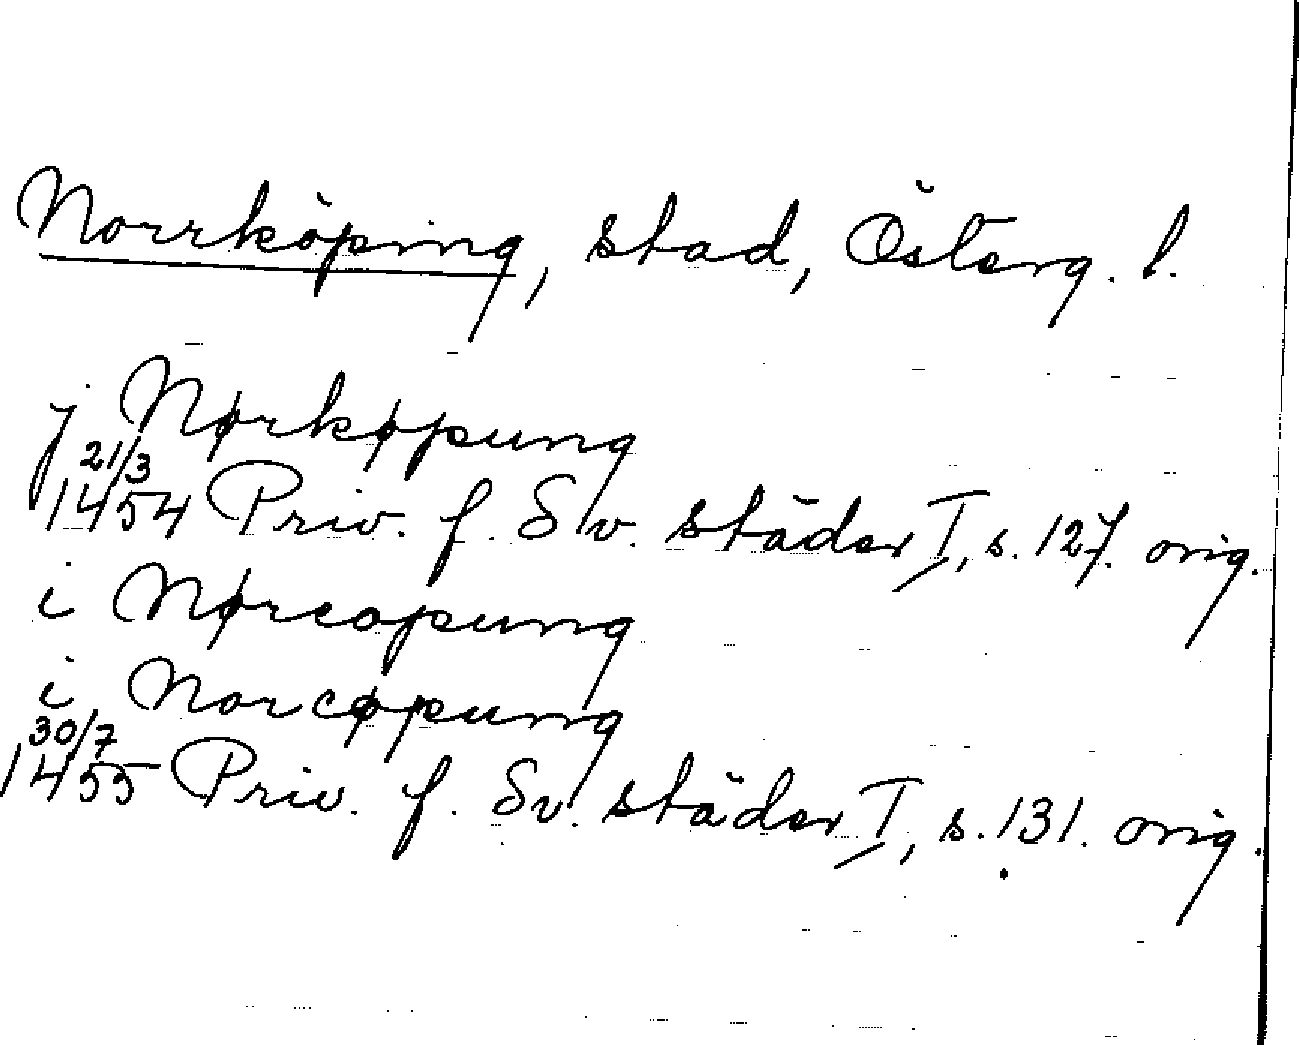 Norrköping, stad, Österg. l.
j Nørkøpung
21/3
1454 Priv. f. Sv. städer I, s. 127. orig.
i Nørcopung
i Norcøpung
30/7
1455 Priv. f. Sv. städer I, s. 131. orig.